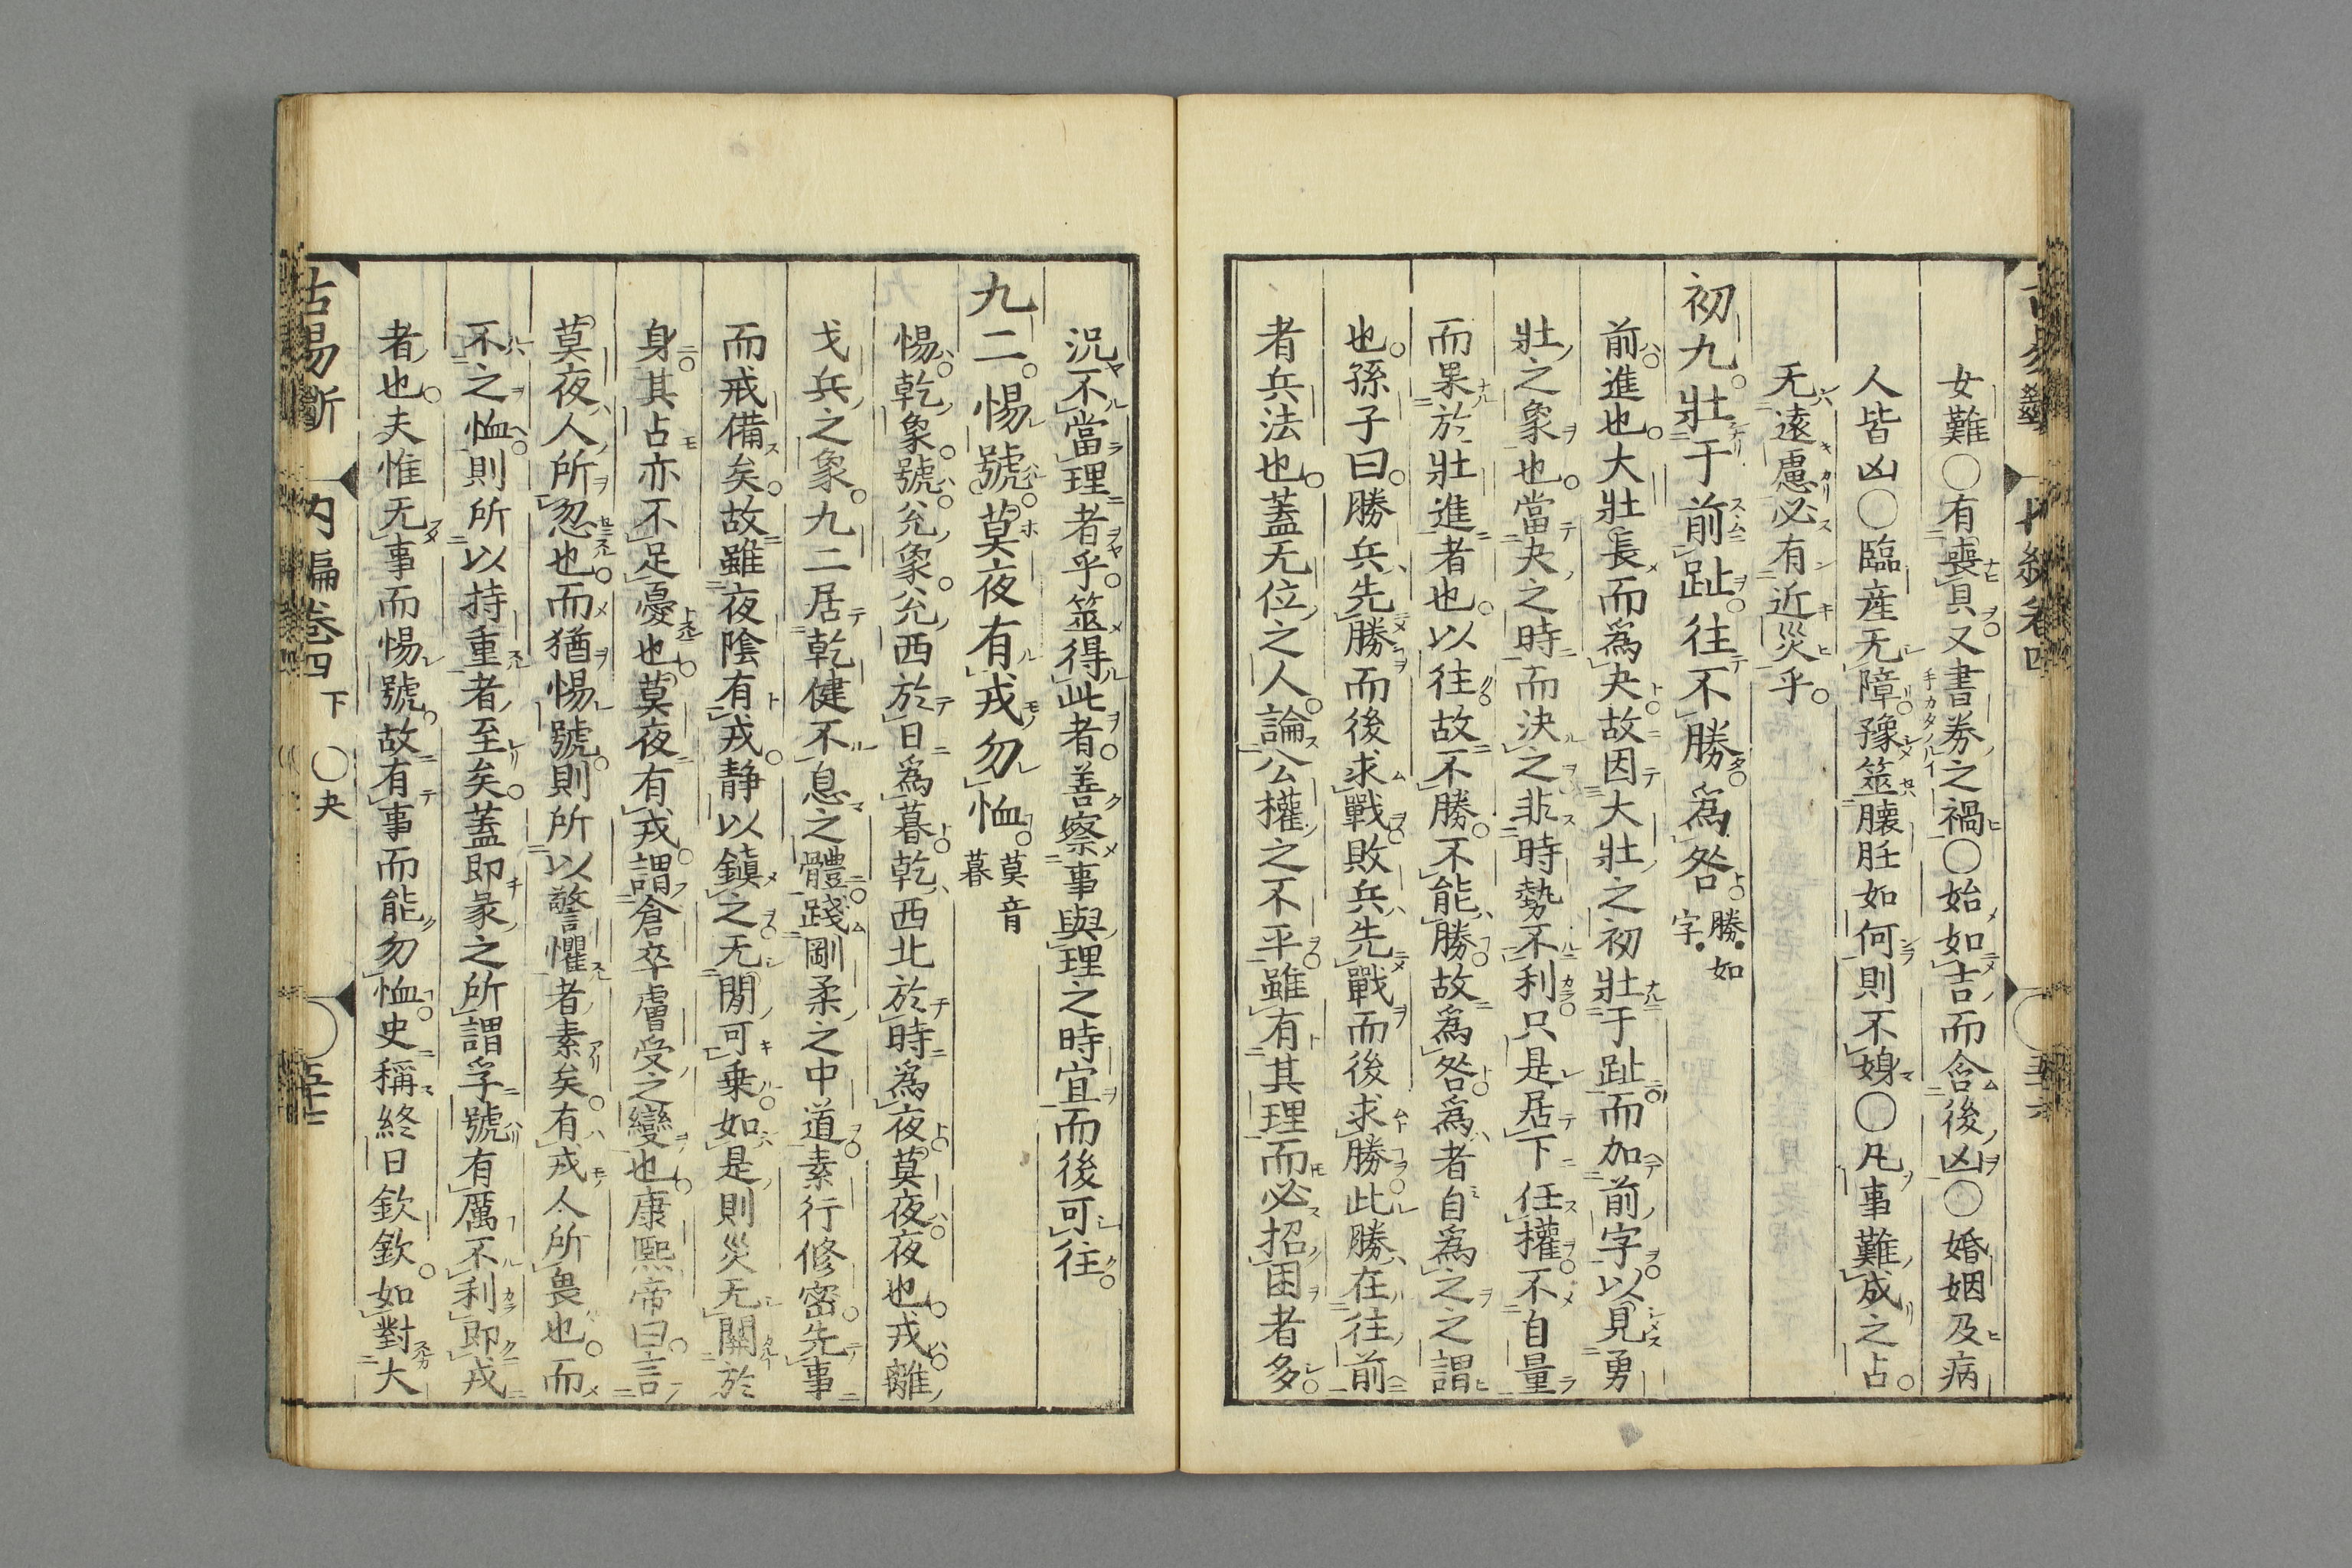 女難○有喪貝又書券之禍○始如吉而含後凶○婚姻及病
人皆凶○臨産无障豫筮臃妊如何則不娩○凡事難成之占
无遠慮必有近災乎
初九壯于前趾往不勝爲咎勝如字
前進也大壯長而爲夬故因大壯之初壯于趾而加前字以見勇
壯之象也當夬之時而決之非時勢不利只是居下任權不自量
而果於壯進者也以往故不勝不能勝故爲咎爲者自爲之之謂
也孫子曰勝兵先勝而後求戰敗兵先戰而後求勝此勝在往前
者兵法也蓋无位之人論公權之不平雖有其理而必招困者多
況不當理者乎筮得此者善察事與理之時宜而後可往
九二惕號莫夜有戎勿恤莫音暮
惕乾象號兌象兌西於日爲暮乾西北於時爲夜莫夜夜也戎離
戈兵之象九二居乾健不息之體踐剛柔之中道素行修密先事
而戒備矣故雖夜陰有戎静以鎮之无閒可乗如是則災无關於
身其占亦不足憂也莫夜有戎謂倉卒膚受之變也康熙帝曰言
莫夜人所忽也而猶惕號則所以警懼者素矣有戎人所畏也而
不之恤則所以持重者至矣蓋即彖之所謂孚號有厲不利即戎
者也夫惟无事而惕號故有事而能勿恤史稱終日欽欽如對大
古易斷 内編卷四 下 ○夬 五十二